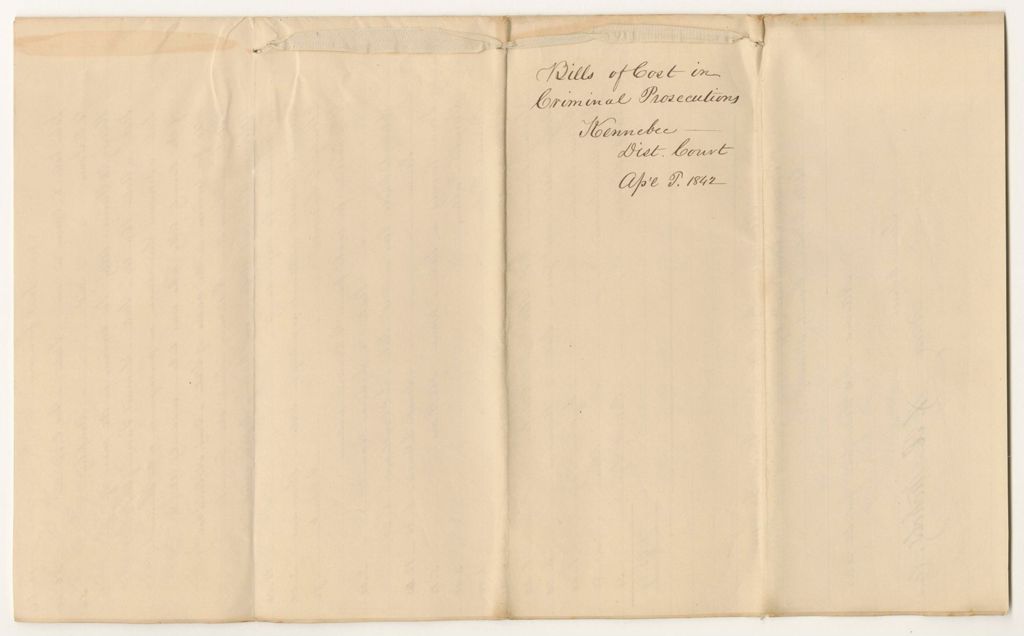 Bills of Cost in
Criminal Prosecutions
Kennebec —
Dist. Court
Ap'l T. 1842